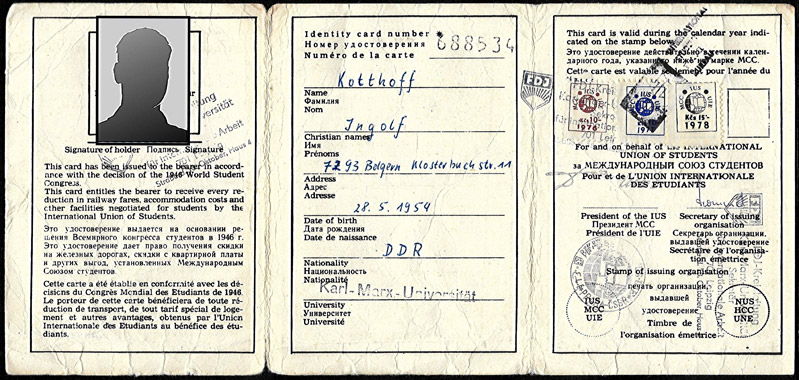 Signature of holder Подпись Signature
This card has been issued to the bearer in accord-
ance with the decision of the 1946 World Student
Congress.
This card entitles the bearer to receive every re-
duction in railway fares, accommodation costs and
other facilities negotiated for students by the
International Union of Students.
Это удостоверение выдается на основании ре-
шения Всемирного конгресса студентов в 1946 г.
Это удостоверение дает право получения скидки
на железных дорогах, скидки с квартирной платы
и других выгод, установленных Международным
Союзом студентов.
Cette carte a été établie en conformité avec les dé-
cisions du Congrès Mondial des Etudiants de 1946.
Le porteur de cette carte bénéficiera de toute ré-
duction de transport, de tout tarif spécial de loge-
ment et autres avantages, obtenus par l'Union
Internationale des Etudiants au bénéfice des étu-
diants.
Identity card number
Номер удостоверения
Numéro de la carte
688534
Kotthoff
Name
Фамилия
Nom
Ingolf
Christian name
Имя
Prénoms
7293 Belgern Klosterbuch str. 11
Address
Адрес
Adresse
28. 5. 1954
Date of birth
Дата рождения
Date de naissance
DDR
Nationality
Национальность
Nationalité
Karl-Marx-Universität
University
Университет
Université
This card is valid during the calendar year indi-
cated on the stamp below
Это удостоверение действительно в течении кален-
дарного года, указанного ниже на марке МСС.
Cette carte est valable seulement pour l'année du
FDJ
Kčs 10-
1976
IUS
MCC IUS UIE
Kčs 15-
1978
For and on behalf of the INTERNATIONAL
UNION OF STUDENTS
за МЕЖДУНАРОДНЫЙ СОЮЗ СТУДЕНТОВ
Pour et de L'UNION INTERNATIONALE
DES ETUDIANTS
President of the IUS
Президент МСС
Président de l'UIE
Secretary of issuing
organisation
Секретарь организации,
выдавшей удостоверение
Secrétaire de l'organisa-
tion émettrice
Stamp of issuing organisation
печать организации,
выдавшей
удостоверение
Timbre de
l'organisation émettrice
IUS
MCC
UIE
NUS
НСС
UNE